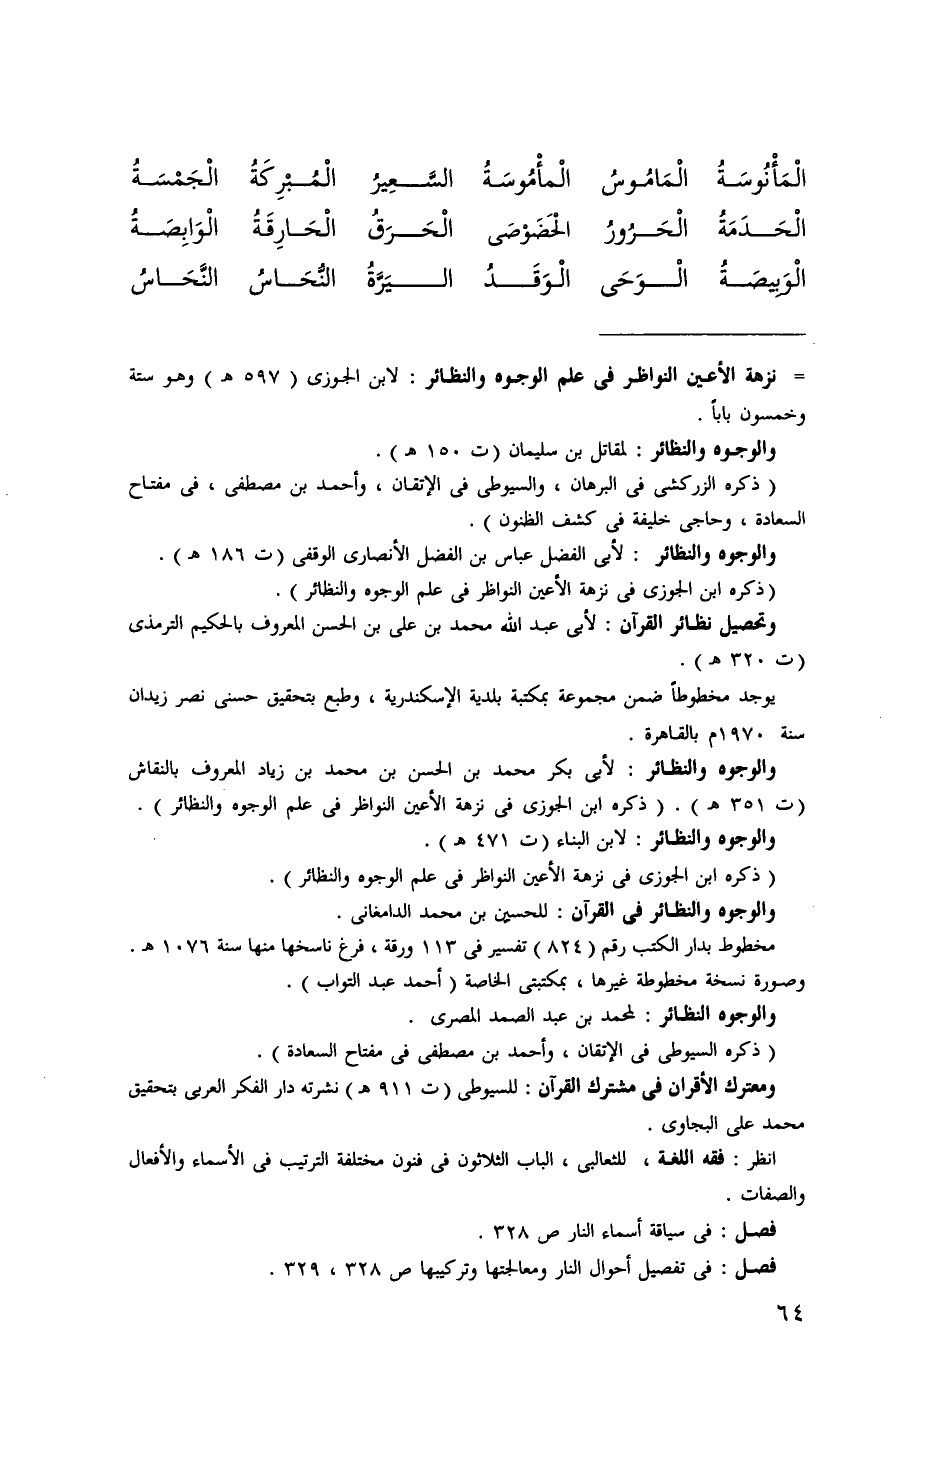 الْمَأْنُوسَةُ الْمَامُوسُ الْمأْمُوسَةُ السَّعِيرُ الْمُبْرِكَةُ الْجَمْسَةُ
الْحَدَمَةُ الْحَرُورُ الْحَضَوْضَى الْحَرَقُ الْحَارِقَةُ الْوَابِصَةُ
الْوَبِيصَةُ الْوَحَى الْوَقَدُ الْيَرَّةُ النُّحَاسُ النَّحَاسُ
= نزهة الأعين النواظر فى علم الوجوه والنظائر : لابن الجوزى ( ٥٩٧ هـ ) وهو ستة
وخمسون باباً .
والوجوه والنظائر : لمقاتل بن سليمان (ت ١٥٠ هـ ) .
( ذكره الزركشى فى البرهان ، والسيوطى فى الإتقان ، وأحمد بن مصطفى ، فى مفتاح
السعادة ، وحاجى خليفة فى كشف الظنون ) .
والوجوه والنظائر : لأبى الفضل عباس بن الفضل الأنصارى الوقفى (ت ١٨٦ هـ ) .
(ذكره ابن الجوزى فى نزهة الأعين النواظر فى علم الوجوه والنظائر ) .
وتحصيل نظائر القرآن : لأبى عبد الله محمد بن على بن الحسن المعروف بالحكيم الترمذى
(ت ٣٢٠ هـ ) .
يوجد مخطوطاً ضمن مجموعة بمكتبة بلدية الإسكندرية ، وطبع بتحقيق حسنى نصر زيدان
سنة ١٩٧٠م بالقاهرة .
والوجوه والنظائر : لأبى بكر محمد بن الحسن بن محمد بن زياد المعروف بالنقاش
(ت ٣٥١ هـ ) . ( ذكره ابن الجوزى فى نزهة الأعين النواظر فى علم الوجوه والنظائر ) .
والوجوه والنظائر : لابن البناء (ت ٤٧١ هـ ) .
( ذكره ابن الجوزى فى نزهة الأعين النواظر فى علم الوجوه والنظائر ) .
والوجوه والنظائر فى القرآن : للحسين بن محمد الدامغانى .
مخطوط بدار الكتب رقم ( ٨٢٤ ) تفسير فى ١١٣ ورقة ، فرغ ناسخها منها سنة ١٠٧٦ هـ .
وصورة نسخة مخطوطة غيرها ، بمكتبتى الخاصة ( أحمد عبد التواب ) .
والوجوه النظائر : لمحمد بن عبد الصمد المصرى .
( ذكره السيوطى فى الإتقان ، وأحمد بن مصطفى فى مفتاح السعادة ) .
ومعترك الأقران فى مشترك القرآن : للسيوطى (ت ٩١١ هـ ) نشرته دار الفكر العربى بتحقيق
محمد على البجاوى .
انظر : فقه اللغة ، للثعالبى ، الباب الثلاثون فى فنون مختلفة الترتيب فى الأسماء والأفعال
والصفات .
فصل : فى سياقة أسماء النار ص ٣٢٨ .
فصل : فى تفصيل أحوال النار ومعالجتها وتركيبها ص ٣٢٨ ، ٣٢٩ .
٦٤